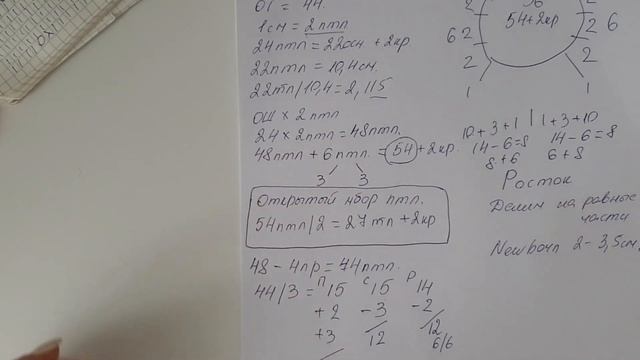 ОГ = 44.
1см = 2птп
24птп = 22осн + 2кр
22птп = 10,4см.
22тп/10,4 = 2,115
ОШ х 2птп
24 х 2птп = 48птп.
48птп + 6птп. = 54 + 2кр.
3 3
Открытый нбор птп.
54птп/2 = 27тп + 2кр
48 - 4пр = 44птп.
44/3 = П15 С15 Р14
+2 -3 -2
+3 12 12
6/6
54+2кр
2 2
6 2 2 6
2 2
1 1
10+3+1 | 1+3+10
14-6=8 14-6=8
8+6 6+8
Росток
Делим на равные
части
Newborn 2-3,5см,
ох